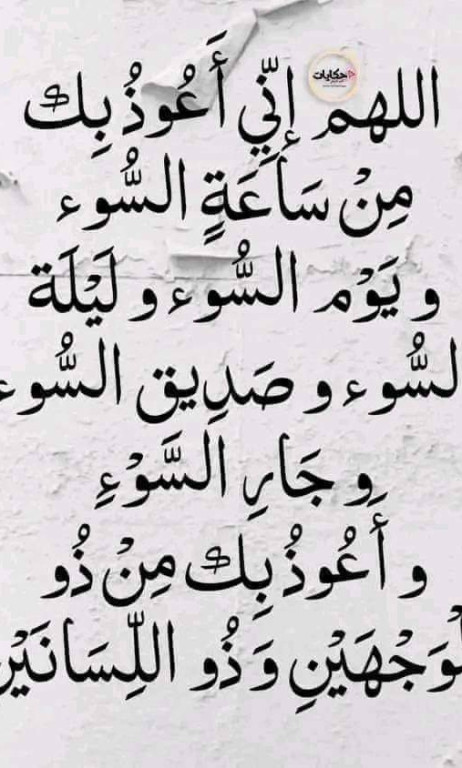 حكايات
اللهم إنِّي أَعُوذُ بِك
مِنْ سَاعَةٍ السُّوء
و يَوْم السُّوء و لَيْلَة
السُّوء و صَدِيق السُّوء
و جَارِ السَّوْءِ
و أَعُوذُ بِك مِنْ ذُو
الْوَجْهَيْنِ وَ ذُو اللِّسَانَيْن